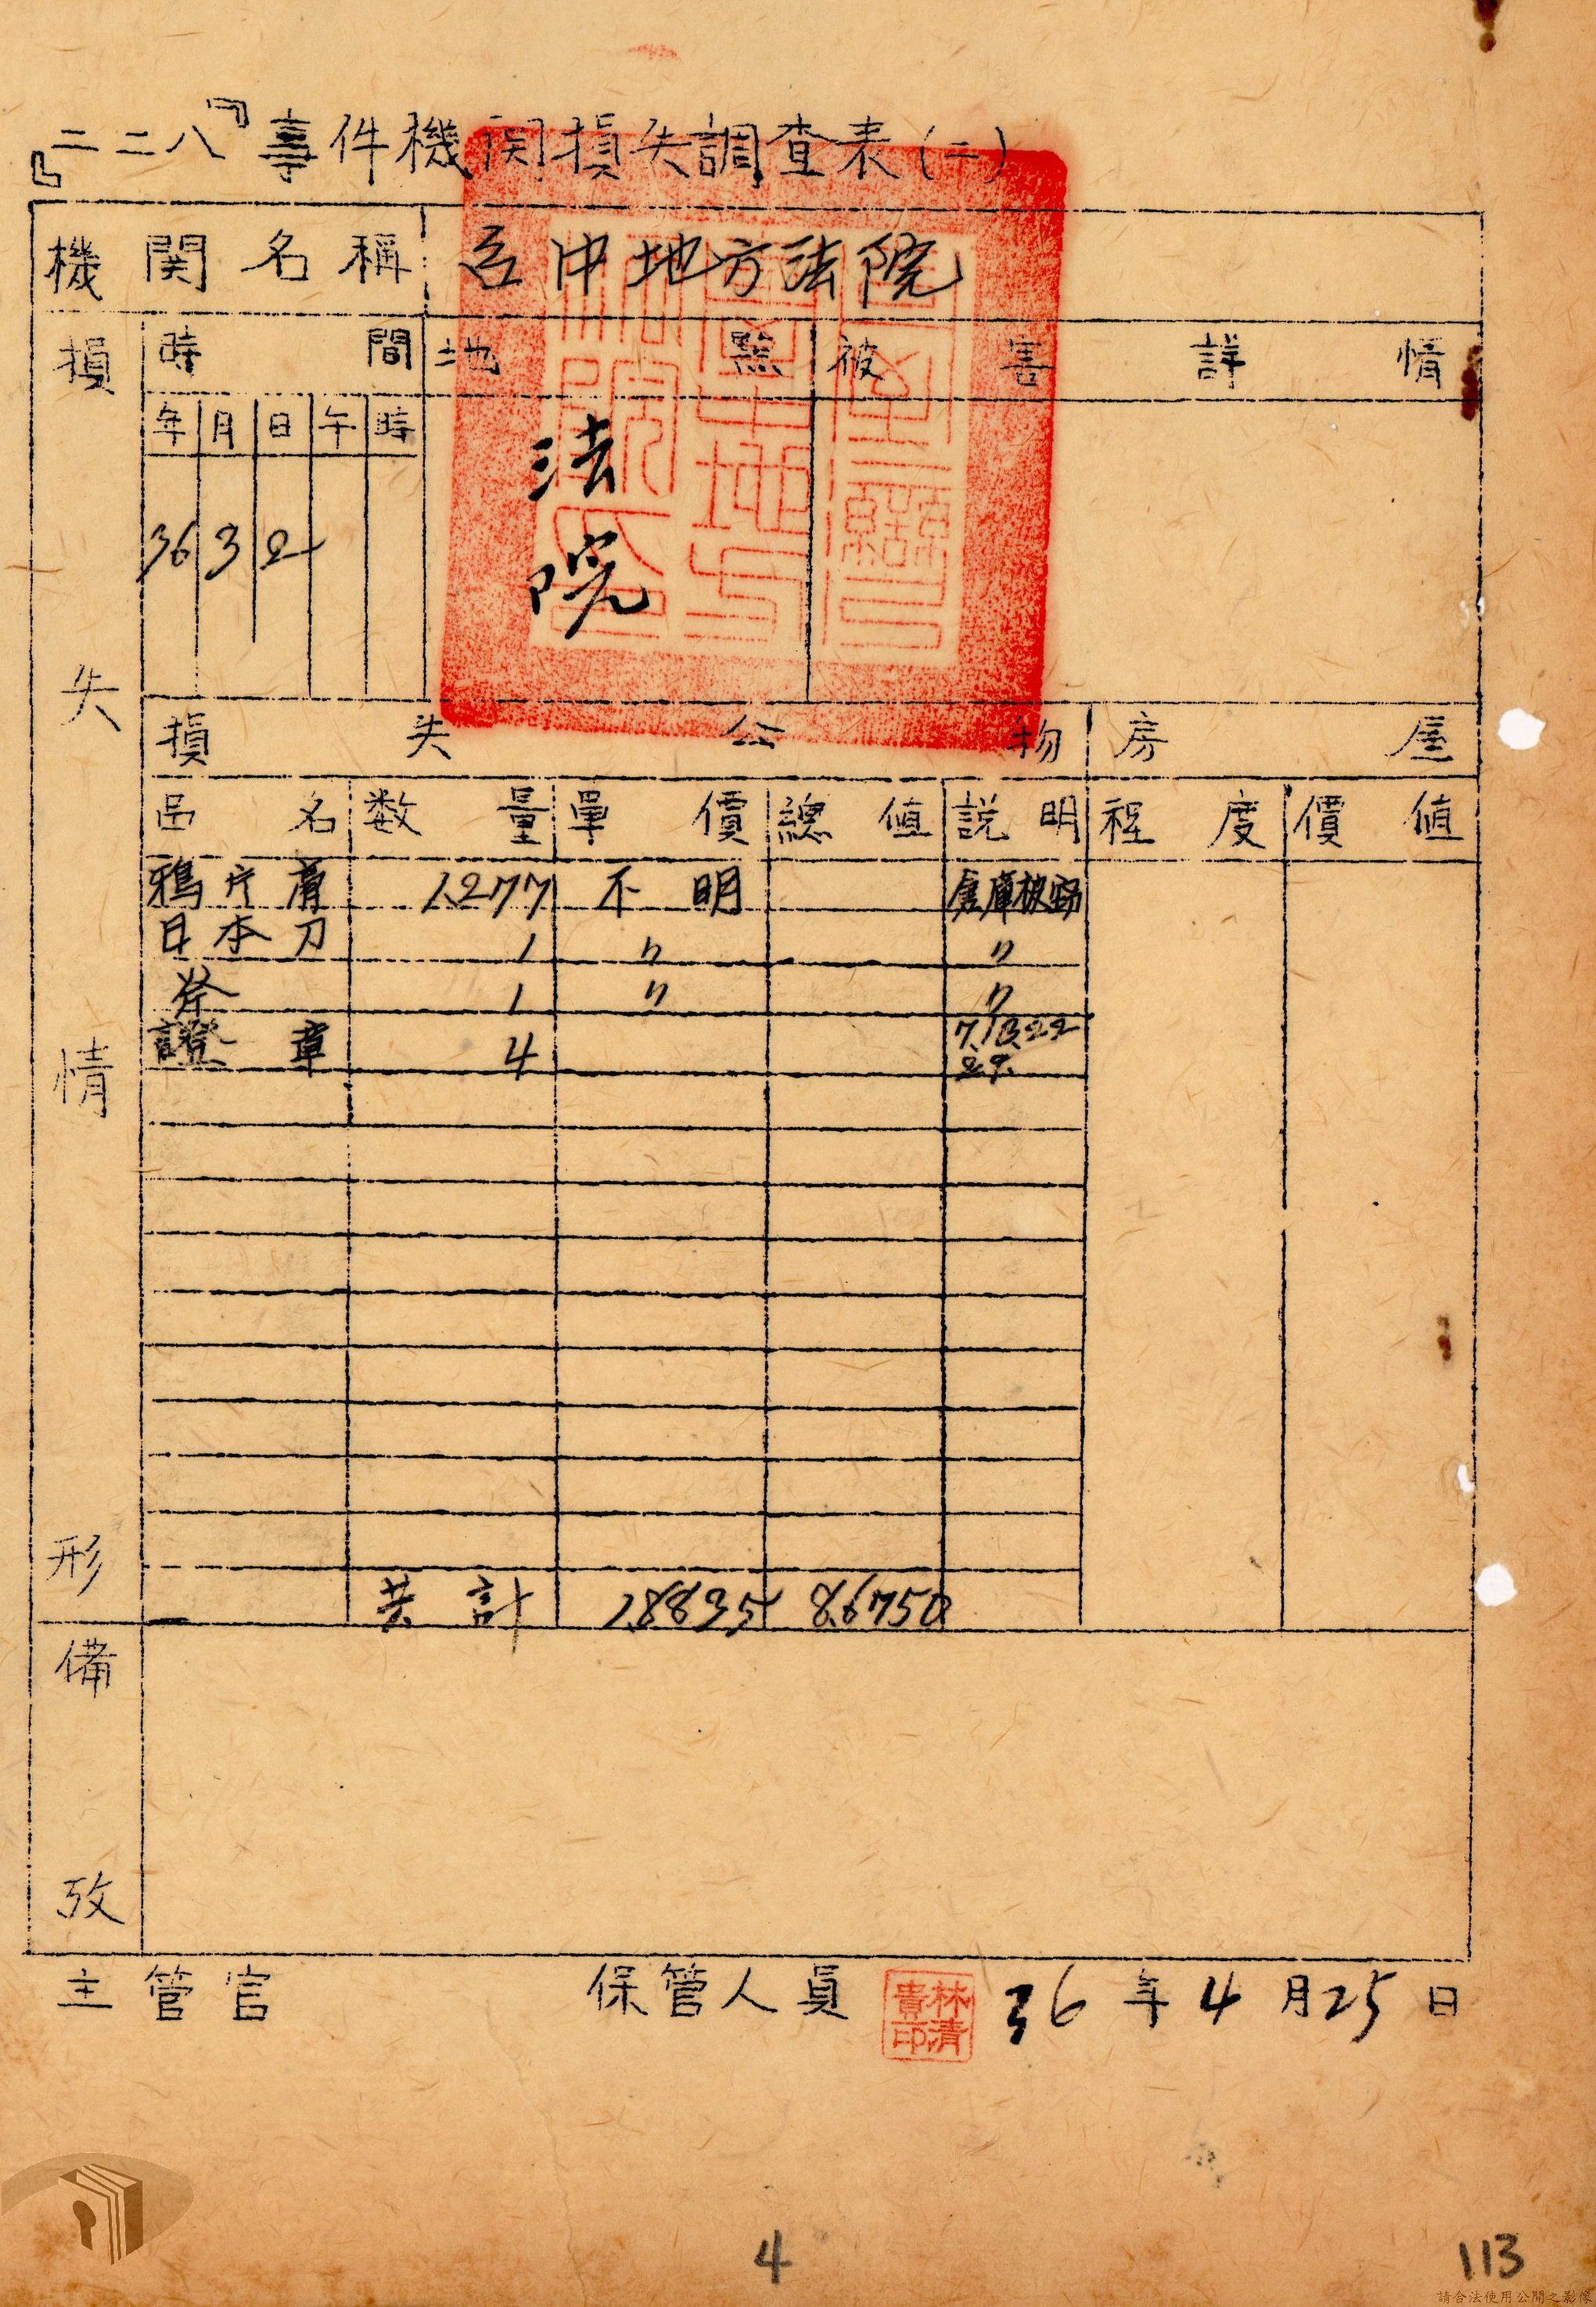 『二二八』事件機関損失調査表(二)
機関名稱 台中地方法院
損失情形
時間 地點 被害詳情
年 月 日 午 時
36 3 2 法院
損失公物 房屋
品名 数量 單價 總值 説明 程度 價值
鴉片膏 1,277 不明 倉庫被
日本刀 1 〃 〃
斧 1 〃 〃
證章 4 7.13.22
29.
共計 1,8835 8,6750
備攷
主管官 保管人員 林清貴印 36年4月25日
4
113
請合法使用公開之影像